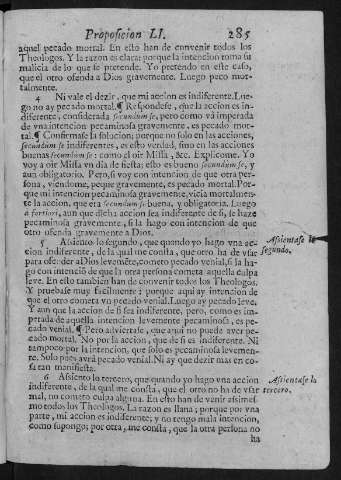 Proposicion LI. 285
aquel pecado mortal. En esto han de convenir todos los
Theologos. Y la razon es clara: porque la intencion toma su
malicia de lo que se pretende. Yo pretendo en este caso,
que el otro ofenda à Dios gravemente. Luego peco mor-
talmente.
4 Ni vale el dezir, que mi accion es indiferente. Lue-
go no ay pecado mortal. ¶ Respondese, que la accion es in-
diferente, considerada secundum se, pero como và imperada
de vna intencion pecaminosa gravemente, es pecado mor-
tal. ¶ Confirmase la solucion; porque no solo en las acciones,
secundum se indiferentes, es esto verdad, sino en las acciones
buenas secundum se: como el oir Missa, &c. Explicome. Yo
voy à oir Missa vn dia de fiesta: esto es bueno secundum se, y
aun obligatorio. Pero, si voy con intencion de que otra per-
sona, viendome, peque gravemente, es pecado mortal. Por-
que mi intencion pecaminosa gravemente, vicia mortalmen-
te la accion, que era secundum se buena, y obligatoria. Luego
a fortiori, aun que dicha accion sea indiferente de si, se haze
pecaminosa gravemente, si la hago con intencion de que
otro ofenda gravemente à Dios.
5 Assiento lo segundo, que quando yo hago vna ac-
cion indiferente, de la qual me consta, que otro ha de vsar
para ofender à Dios levemẽte, cometo pecado venial, si la ha-
go con intenciõ de que la otra persona cometa aquella culpa
leve. En esto tambien han de convenir todos los Theologos.
Y pruebase muy facilmente; porque aqui ay intencion de
que el otro cometa vn pecado venial. Luego ay pecado leve.
Y aun que la accion de si sea indiferente, pero, como es im-
perada de aquella intencion levemente pecaminosa, es pe-
cado venial. ¶ Pero adviertase, que aqui no puede aver pe-
cado mortal. No por la accion, que de si es indiferente. Ni
tampoco por la intencion, que solo es pecaminosa levemen-
te. Solo pues avrà pecado venial. Ni ay que dezir mas en co-
sa tan manifiesta.
6 Assiento lo tercero, que quando yo hago vna accion
indiferente, de la qual me consta, que el otro no ha de vsar
mal, no cometo culpa alguna. En esto han de venir assimes-
mo todos los Theologos. La razon es llana; porque por vna
parte, mi accion es indiferente; y no tengo mala intencion,
como supongo; por otra, me consta, que la otra persona no
ha
Assientase lo
segundo.
Assientase lo
tercero.